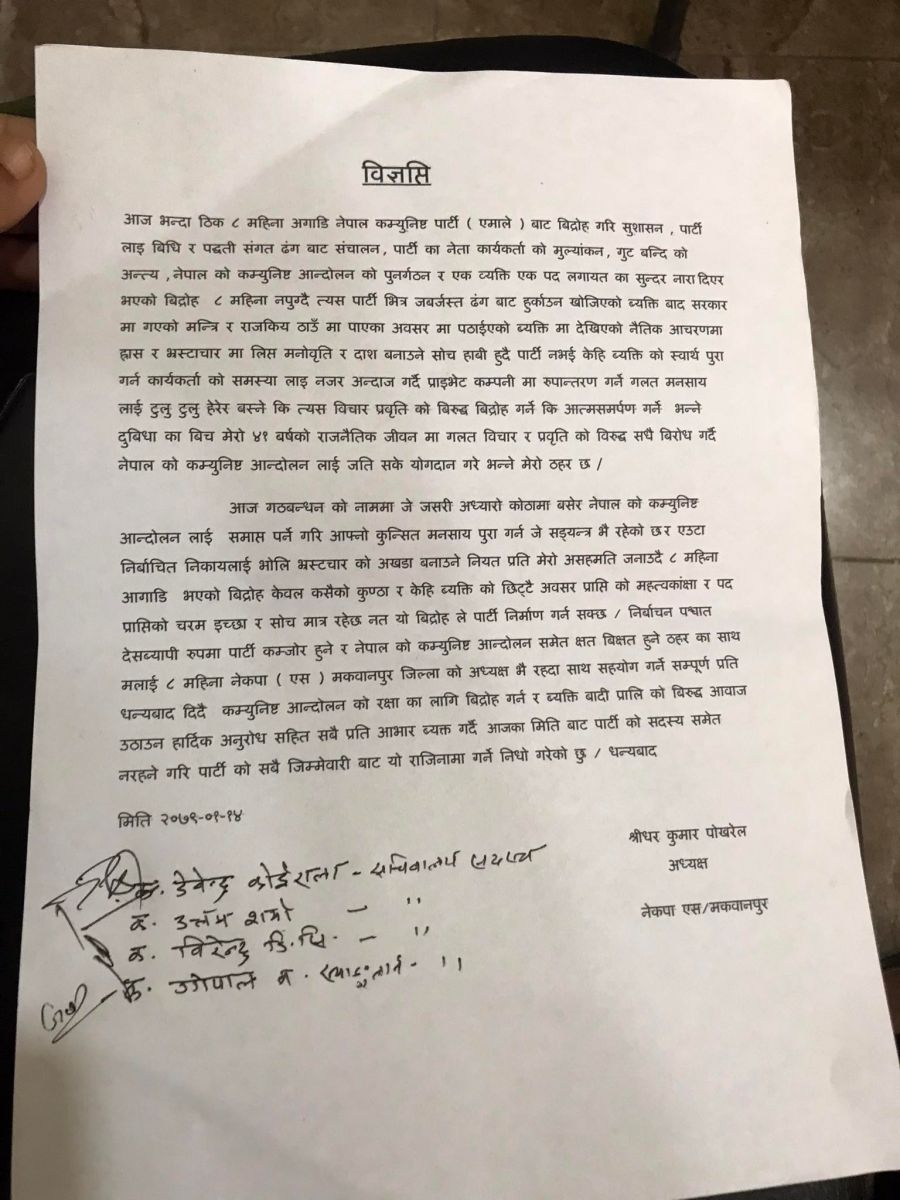 विज्ञप्ति
आज भन्दा ठिक ८ महिना अगाडि नेपाल कम्युनिष्ट पार्टी ( एमाले ) बाट बिद्रोह गरि सुशासन , पार्टी
लाइ बिधि र पद्धती संगत ढंग बाट संचालन , पार्टी का नेता कार्यकर्ता को मुल्यांकन , गुट बन्दि को
अन्त्य , नेपाल को कम्युनिष्ट आन्दोलन को पुनर्गठन र एक व्यक्ति एक पद लगायत का सुन्दर नारा दिएर
भएको बिद्रोह ८ महिना नपुग्दै त्यस पार्टी भित्र जबर्जस्त ढंग बाट हुर्काउन खोजिएको ब्यक्ति बाद सरकार
मा गएको मन्त्रि र राजकिय ठाउँ मा पाएका अवसर मा पठाईएको ब्यक्ति मा देखिएको नैतिक आचरणमा
ह्रास र भ्रस्टाचार मा लिप्त मनोवृति र दाश बनाउने सोच हाबी हुदै पार्टी नभई केहि ब्यक्ति को स्वार्थ पुरा
गर्न कार्यकर्ता को समस्या लाइ नजर अन्दाज गर्दै प्राइभेट कम्पनी मा रुपान्तरण गर्ने गलत मनसाय
लाई टुलु टुलु हेरेर बस्ने कि त्यस विचार प्रवृति को बिरुद्ध बिद्रोह गर्ने कि आत्मसमर्पण गर्ने भन्ने
दुबिधा का बिच मेरो ४१ बर्षको राजनैतिक जीवन मा गलत विचार र प्रवृति को विरुद्ध सधै बिरोध गर्दै
नेपाल को कम्युनिष्ट आन्दोलन लाई जति सके योगदान गरे भन्ने मेरो ठहर छ /
आज गठबन्धन को नाममा जे जसरी अध्यारो कोठामा बसेर नेपाल को कम्युनिष्ट
आन्दोलन लाई समाप्त पर्ने गरि आफ्नो कुन्सित मनसाय पुरा गर्न जे सड्यन्त्र भै रहेको छ र एउटा
निर्बाचित निकायलाई भोलि भ्रस्टचार को अखडा बनाउने नियत प्रति मेरो असहमति जनाउदै ८ महिना
आगाडि भएको बिद्रोह केवल कसैको कुण्ठा र केहि ब्यक्ति को छिट्टै अवसर प्राप्ति को महत्वकांक्षा र पद
प्राप्तिको चरम इच्छा र सोच मात्र रहेछ नत यो बिद्रोह ले पार्टी निर्माण गर्न सक्छ / निर्बाचन पश्चात
देसब्यापी रुपमा पार्टी कम्जोर हुने र नेपाल को कम्युनिष्ट आन्दोलन समेत क्षत बिक्षत हुने ठहर का साथ
मलाई ८ महिना नेकपा ( एस ) मकवानपुर जिल्ला को अध्यक्ष भै रहदा साथ सहयोग गर्ने सम्पूर्ण प्रति
धन्यबाद दिदै कम्युनिष्ट आन्दोलन को रक्षा का लागि बिद्रोह गर्न र ब्यक्ति बादी प्रालि को बिरुद्ध आवाज
उठाउन हार्दिक अनुरोध सहित सबै प्रति आभार ब्यक्त गर्दै आजका मिति बाट पार्टी को सदस्य समेत
नरहने गरि पार्टी को सबै जिम्मेवारी बाट यो राजिनामा गर्ने निधो गरेको छु / धन्यबाद
मिति २०७९-०१-१४
श्रीधर कुमार पोखरेल
अध्यक्ष
नेकपा एस/मकवानपुर
क. देवेन्द्र कोईराला - सचिवालय सदस्य
क. उत्तम शर्मा - "
क. विरेन्द्र जि.सि. - "
क. - "